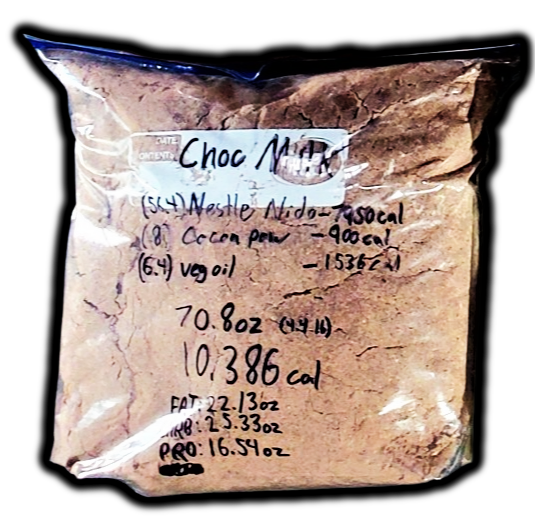 DATE
CONTENTS
Choc Milk
(56.4) Nestle Nido - 7950cal
(8) Cocoa pow - 900cal
(6.4) veg oil - 1536cal
70.8oz (4.4 lb)
10,386 cal
FAT: 22.13oz
CARB: 25.33oz
PRO: 16.54oz